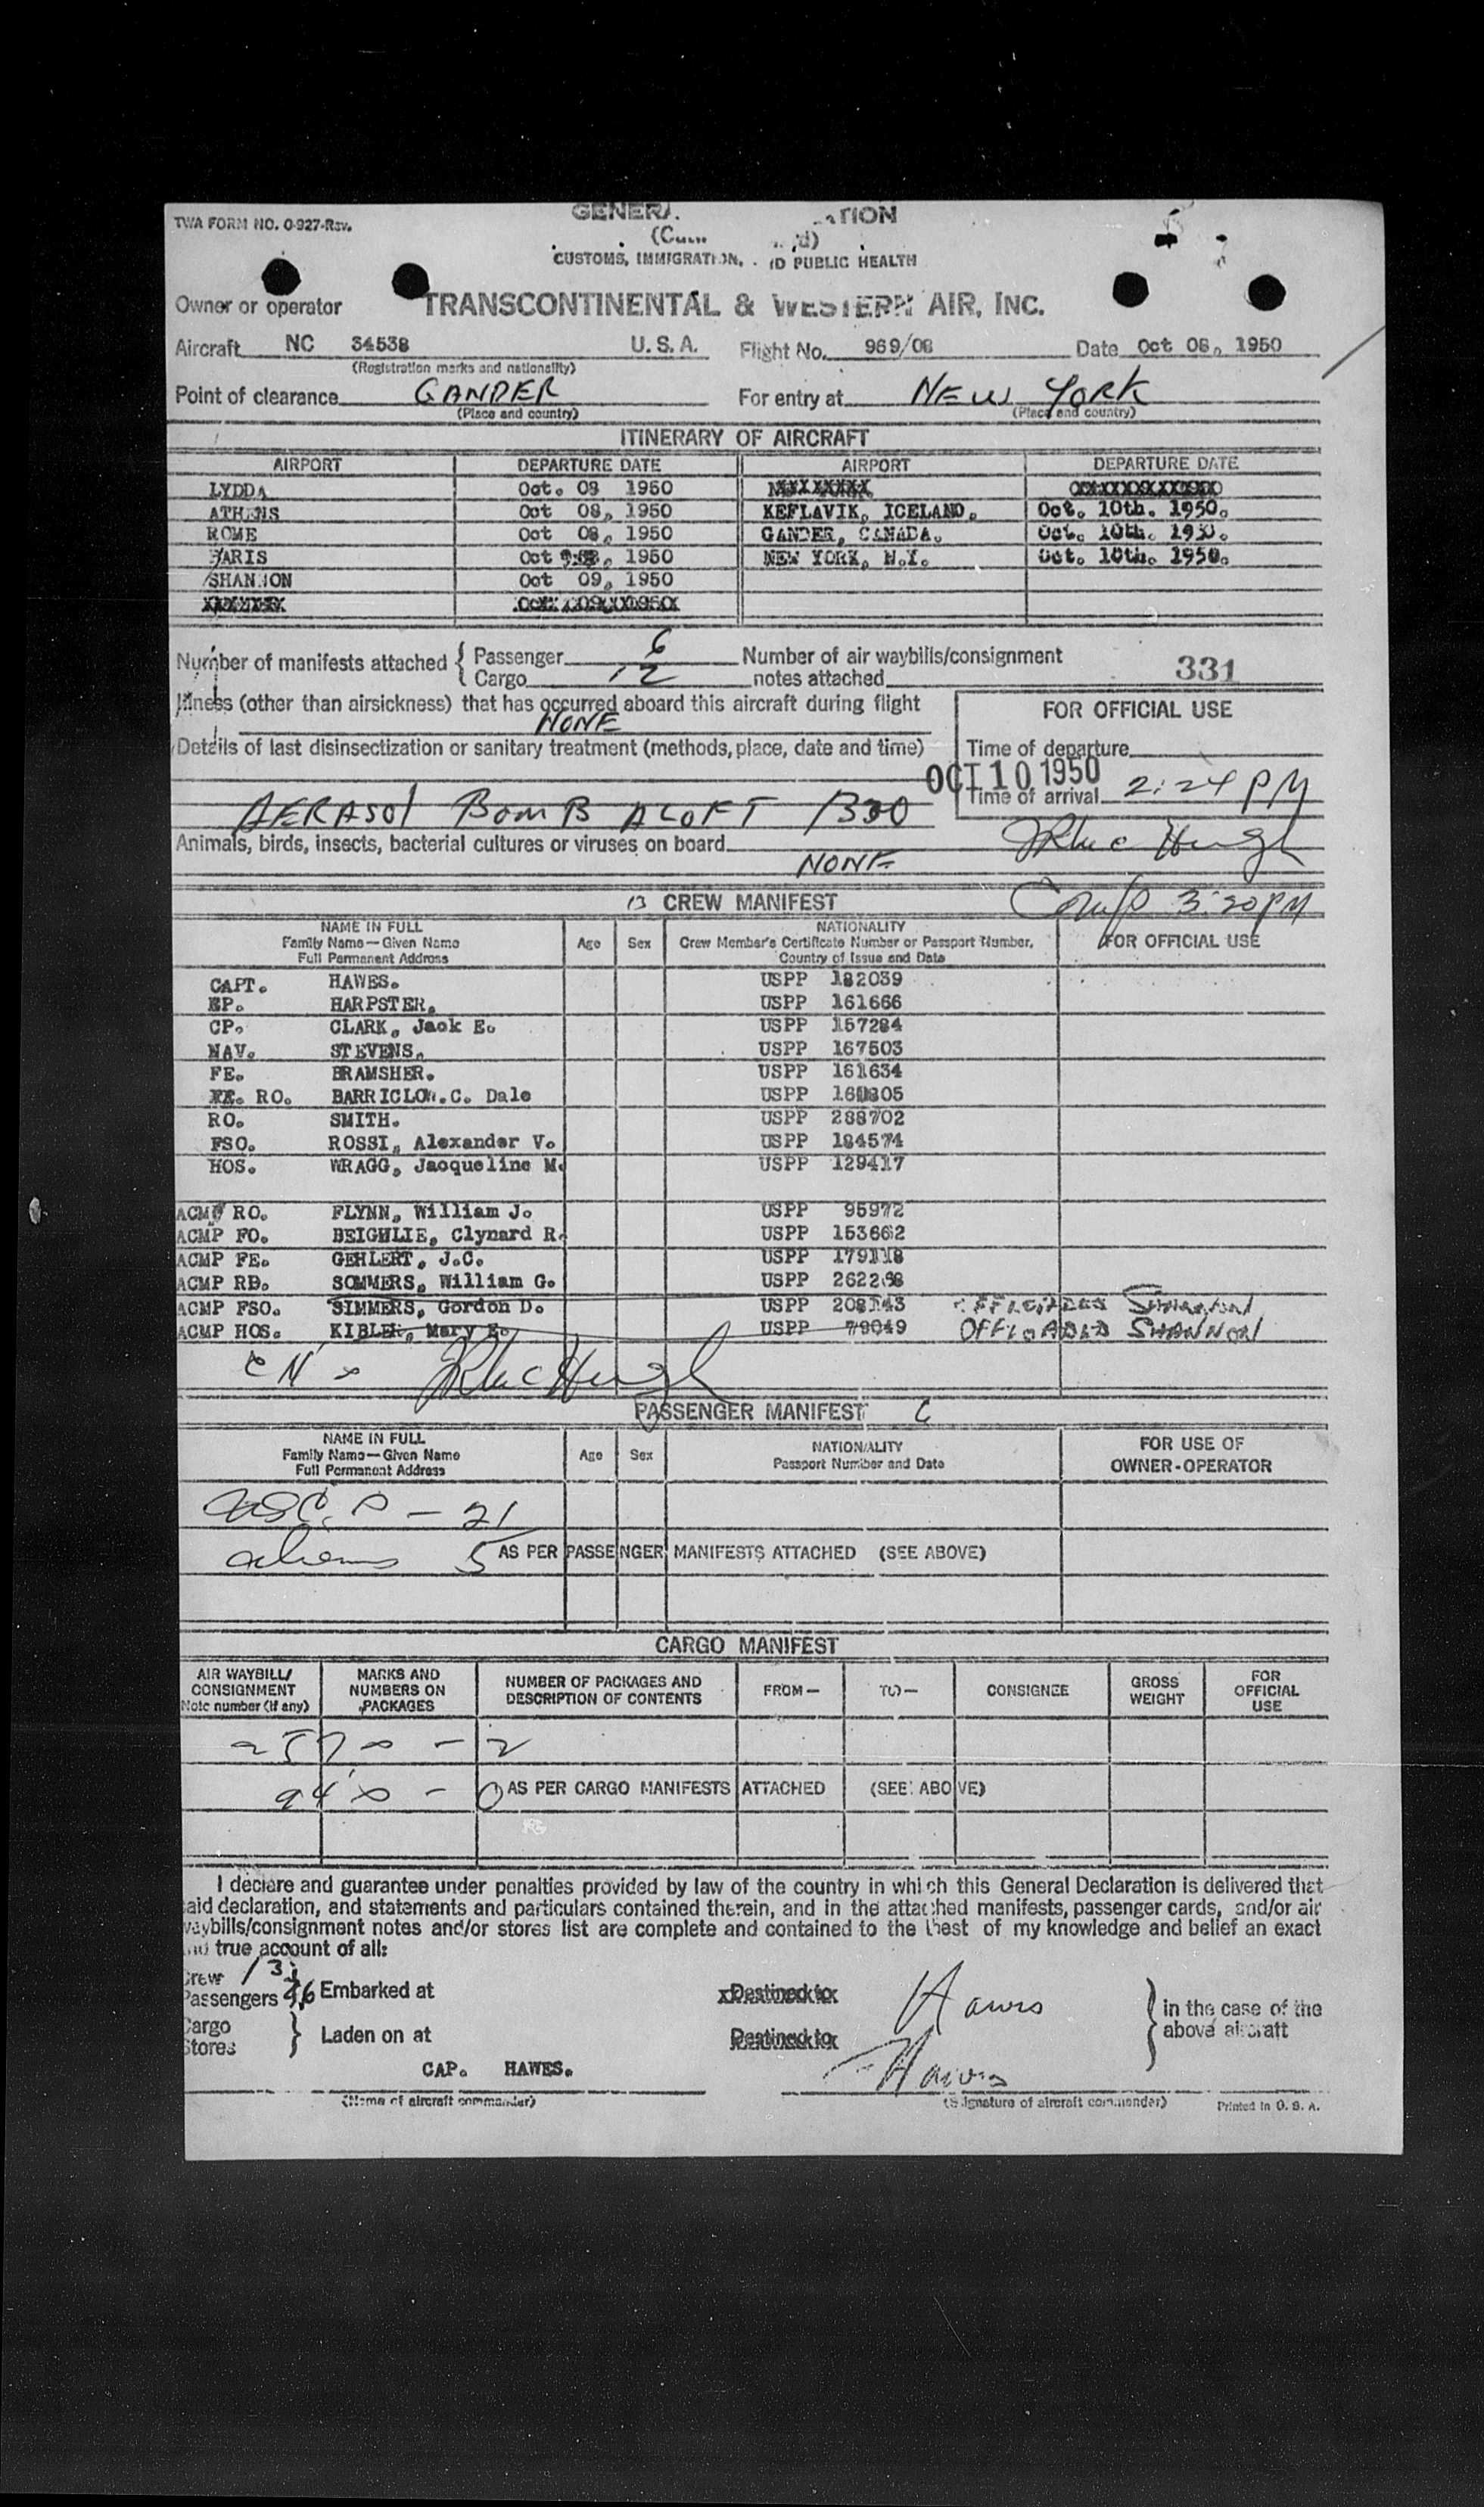 TWA FORM NO. 0-927-Rev.
CUSTOMS, IMMIGRATION, PUBLIC HEALTH
Owner or operator TRANSCONTINENTAL & WESTERN AIR, INC.
Aircraft NC 34538 U.S.A. Flight No. 969/08 Date Oct 08, 1950
(Registration marks and nationality)
Point of clearance GANDER For entry at NEW YORK
(Place and country) (Place and country)
ITINERARY OF AIRCRAFT
AIRPORT DEPARTURE DATE AIRPORT DEPARTURE DATE
LYDDA Oct. 08 1950
ATHENS Oct 08, 1950 KEFLAVIK, ICELAND. Oct. 10th. 1950.
ROME Oct 08, 1950 GANDER, CANADA. Oct. 10th. 1950.
PARIS Oct 1950 NEW YORK, N.Y. Oct. 10th. 1950.
SHANNON Oct 09, 1950
Number of manifests attached { Passenger 6 Number of air waybills/consignment
Cargo 12 notes attached 331
Illness (other than airsickness) that has occurred aboard this aircraft during flight FOR OFFICIAL USE
NONE
Details of last disinsectization or sanitary treatment (methods, place, date and time) Time of departure
OCT 10 1950
Time of arrival 2:24 PM
AERASOL BOMB ALOFT 1330
Animals, birds, insects, bacterial cultures or viruses on board
NONE
13 CREW MANIFEST Comp 3:20 PM
NAME IN FULL NATIONALITY
Family Name—Given Name Age Sex Crew Member's Certificate Number or Passport Number, FOR OFFICIAL USE
Full Permanent Address Country of Issue and Date
CAPT. HAWES. USPP 182039
EP. HARPSTER. USPP 161666
CP. CLARK, Jack E. USPP 157284
NAV. STEVENS. USPP 167503
FE. BRAMSHER. USPP 161634
RO. BARRICLOW.C. Dale USPP
RO. SMITH. USPP 288702
FSO. ROSSI, Alexander V. USPP 184574
HOS. WRAGG, Jacqueline M. USPP 129417
ACMP RO. FLYNN, William J. USPP 95972
ACMP FO. BEIGHLIE, Clynard R. USPP 153662
ACMP FE. GEHLERT, J.C. USPP 179118
ACMP RB. SOMMERS, William G. USPP
ACMP FSO. SIMMERS, Gordon D. USPP 208143 OFFLOADED SHANNON
ACMP HOS. KIBLER, Mary E. USPP 79049 OFFLOADED SHANNON
PASSENGER MANIFEST 6
NAME IN FULL NATIONALITY FOR USE OF
Family Name—Given Name Age Sex Passport Number and Date OWNER-OPERATOR
Full Permanent Address
— 21
aliens 5 AS PER PASSENGER MANIFESTS ATTACHED (SEE ABOVE)
CARGO MANIFEST
AIR WAYBILL/ MARKS AND NUMBER OF PACKAGES AND FROM— TO— CONSIGNEE GROSS FOR
CONSIGNMENT NUMBERS ON DESCRIPTION OF CONTENTS WEIGHT OFFICIAL
Note number (if any) PACKAGES USE
AS PER CARGO MANIFESTS ATTACHED (SEE ABOVE)
I declare and guarantee under penalties provided by law of the country in which this General Declaration is delivered that
said declaration, and statements and particulars contained therein, and in the attached manifests, passenger cards, and/or air
waybills/consignment notes and/or stores list are complete and contained to the best of my knowledge and belief an exact
and true account of all:
Crew 13
Passengers Embarked at Destined to Hawes in the case of the
Cargo } Laden on at Destined to above aircraft
Stores
CAP. HAWES. Hawes
(Name of aircraft commander) (Signature of aircraft commander) Printed in U. S. A.